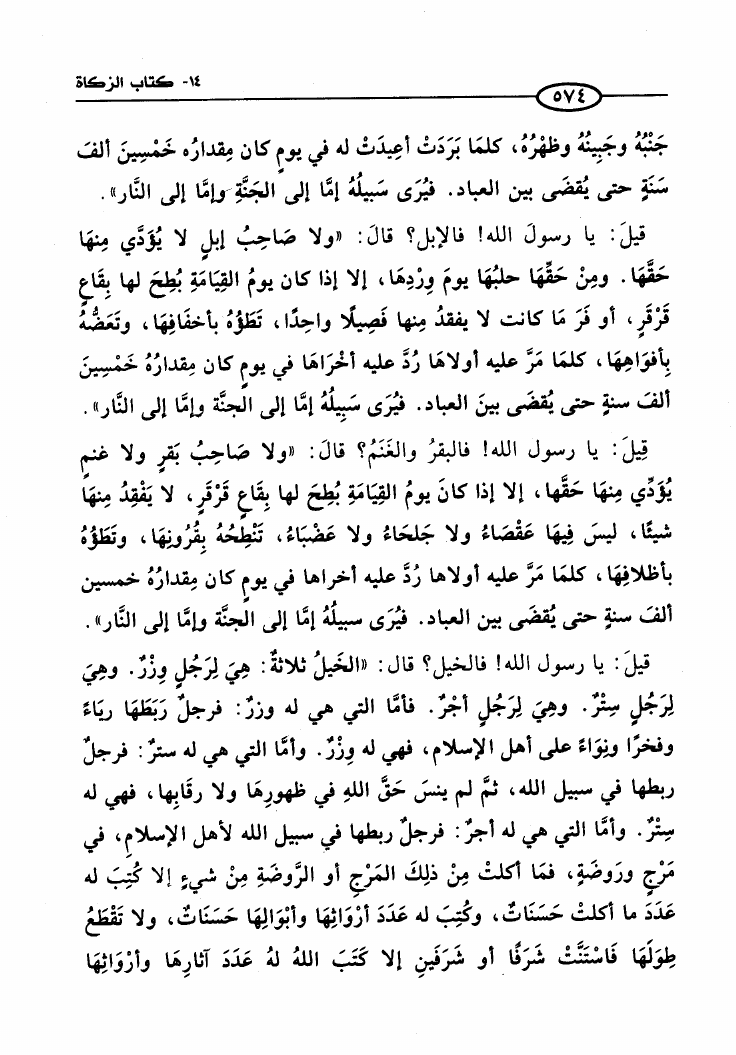 ١٤- كتاب الزكاة
٥٧٤
جَنْبُهُ وجَبِينُهُ وظهْرُهُ، كلمَا بَرَدَتْ أعِيدَتْ له في يومٍ كان مِقدارُه خَمْسِينَ ألفَ
سَنَةٍ حتى يُقضَى بين العباد. فيُرَى سَبيلُهُ إمَّا إلى الجَنَّةِ وإمَّا إلى النَّار».
قيلَ: يا رسولَ الله! فالإبل؟ قالَ: «ولا صَاحِبُ إبلٍ لا يُؤَدِّي مِنهَا
حَقَّهَا. ومِنْ حَقِّهَا حلبُهَا يومَ وِرْدِهَا، إلا إذا كان يومُ القِيَامَةِ بُطِحَ لها بِقَاعٍ
قَرْقَرٍ، أو فَرَ مَا كانت لا يفقدُ مِنها فَصِيلًا واحِدًا، تَطَؤُهُ بأخفَافِهَا، وتَعَضُّهُ
بِأفوَاهِهَا، كلمَا مَرَّ عليه أولاهَا رُدَّ عليه أخْرَاهَا في يومٍ كان مِقدارُهُ خَمْسِينَ
ألفَ سنةٍ حتى يُقضَى بينَ العباد. فيُرَى سَبِيلُهُ إمَّا إلى الجنَّة وإمَّا إلى النَّار».
قِيلَ: يا رسول الله! فالبقرُ والغَنَمُ؟ قالَ: «ولا صَاحِبُ بَقرٍ ولا غنمٍ
يُؤَدِّي مِنهَا حَقَّها، إلا إذا كانَ يومُ القِيَامَةِ بُطِحَ لها بِقَاعٍ قَرْقَرٍ، لا يَفْقِدُ مِنهَا
شيئًا، ليسَ فِيهَا عَقْصَاءُ ولا جَلحَاءُ ولا عَضْبَاءُ، تَنْطِحُهُ بِقُرُونِهَا، وتَطَؤُهُ
بأظلافِهَا، كلمَا مَرَّ عليه أولاها رُدَّ عليه أخراها في يومٍ كان مِقدارُهُ خمسين
ألفَ سنةٍ حتى يُقضَى بين العباد. فيُرَى سبيلُهُ إمَّا إلى الجنَّة وإمَّا إلى النَّار».
قيلَ: يا رسول الله! فالخيل؟ قال: «الخَيلُ ثلاثةٌ: هِيَ لِرَجُلٍ وِزْرٌ. وهِيَ
لِرَجُلٍ سِتْرٌ. وهِيَ لِرَجُلٍ أجْرٌ. فأمَّا التي هي له وزرٌ: فرجلٌ رَبَطَهَا رِيَاءً
وفخرًا ونِوَاءً على أهل الإسلام، فهي له وِزْرٌ. وأمَّا التي هي له سترٌ: فرجلٌ
ربطها في سبيل الله، ثمَّ لم ينسَ حَقَّ اللهِ في ظهورِهَا ولا رقَابِها، فهي له
سِتْرٌ. وأمَّا التي هي له أجرٌ: فرجلٌ ربطها في سبيل الله لأهل الإسلامِ، في
مَرْجٍ ورَوضَةٍ، فمَا أكلتْ مِنْ ذلِكَ المَرْجِ أو الرَّوضَةِ مِنْ شيءٍ إلا كُتِبَ له
عَدَدَ ما أكلتْ حَسَنَاتٌ، وكُتِبَ له عَدَدَ أرْوَاثِهَا وأبْوَالِهَا حَسَنَاتٌ، ولا تَقْطَعُ
طِوَلَهَا فَاسْتَنَّتْ شَرَفًا أو شَرَفَينِ إلا كَتَبَ اللهُ لهُ عَدَدَ آثارِهَا وأرْوَاثِهَا